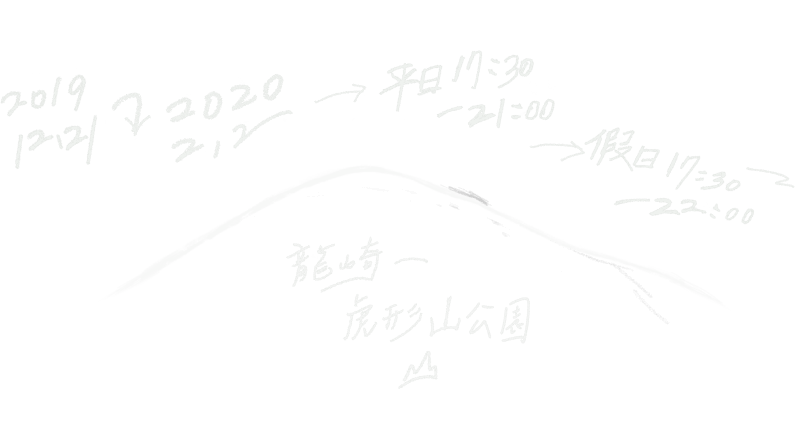 2019
12.21
2020
2.2
平日 17:30
-21:00
假日 17:30
-22:00
龍崎
虎形山公園